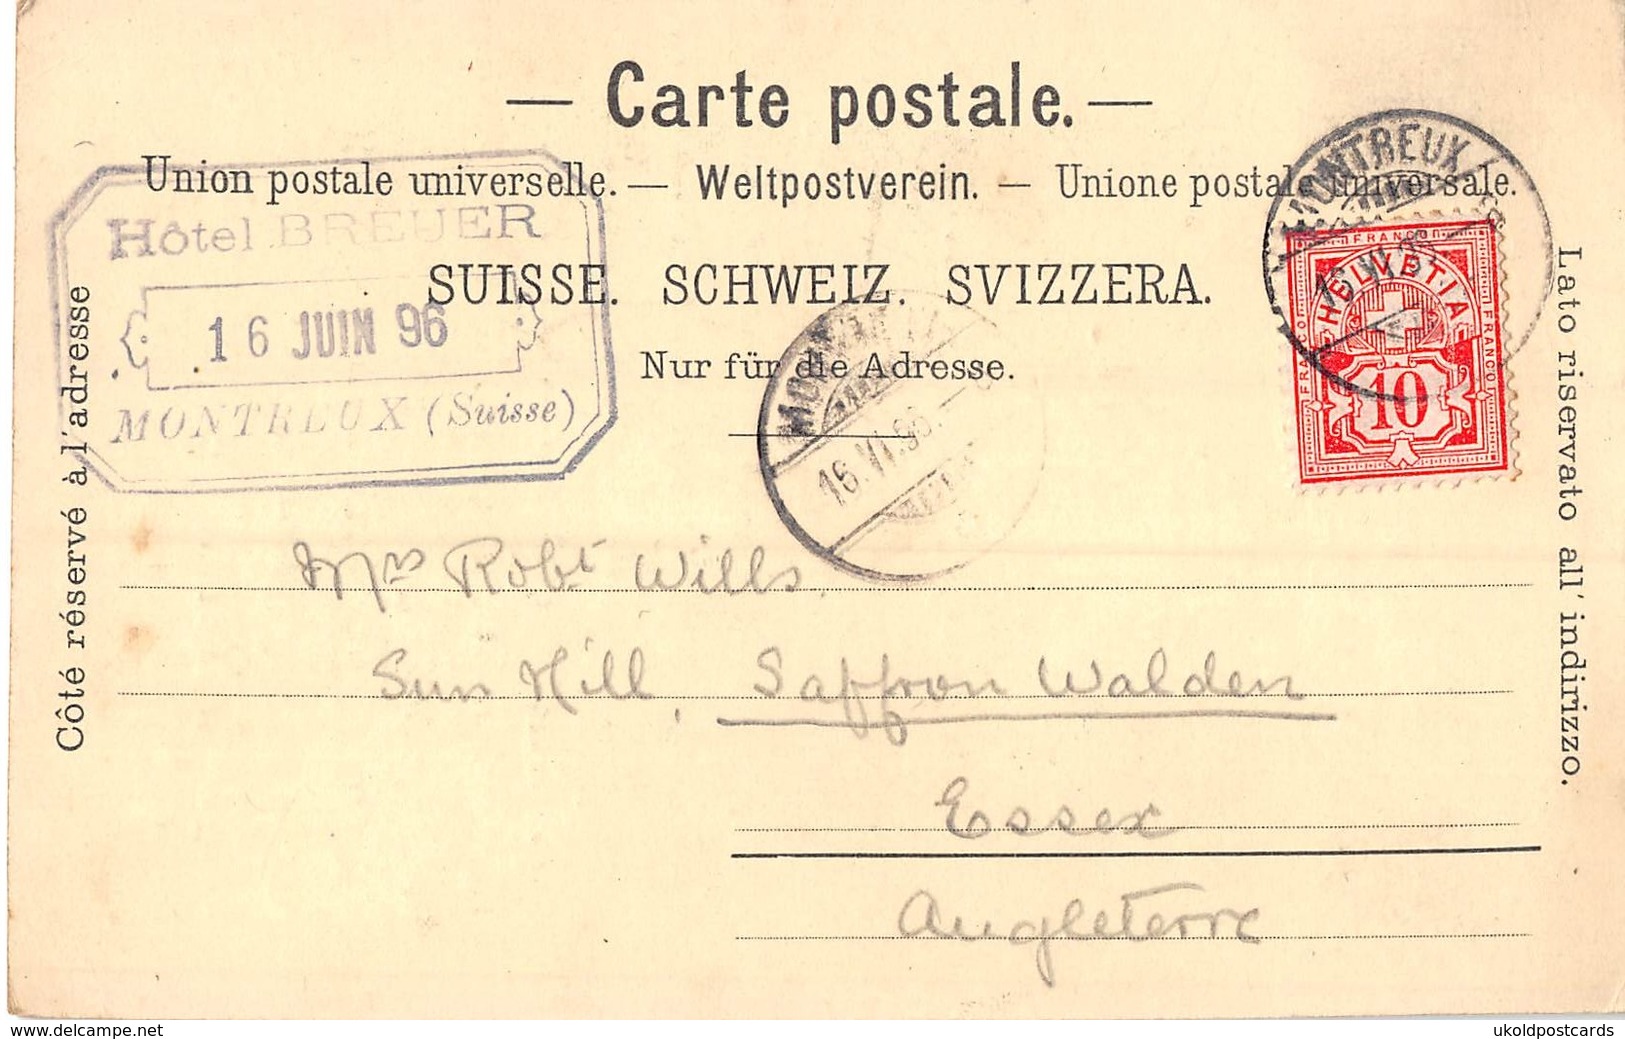 — Carte postale. —
Union postale universelle. — Weltpostverein. — Unione postale universale.
SUISSE. SCHWEIZ. SVIZZERA.
Nur für die Adresse.
Côté réservé à l'adresse
Lato riservato all' indirizzo.
Hôtel BREUER
16 JUIN 96
MONTREUX (Suisse)
MONTREUX
16.VI.96
MONTREUX
16.VI.96.
FRANCO
HELVETIA
FRANCO
FRANCO
10
Mrs Robt Wills
Sun Hill, Saffron Walden
Essex
Angleterre
delcampe.net
ukoldpostcards